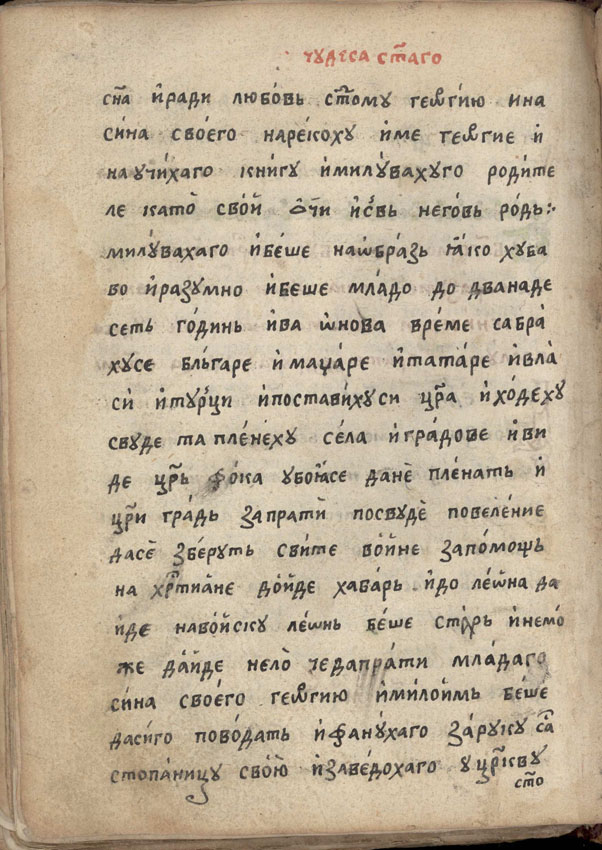 чудеса ст҃аго
сн҃а и҆ради любо́вь ст҃ому геѡ҆гі́ю ина
си́на свое́го нареко́ху и́ме геѡ҆́гие и҆
научи́хаго кни́гу и҆милꙋ́вахуго роди́те
ле като̀ сво́й ѻ҆́чи и҆со́вь него́вь ро́дь:·
милꙋ́вахаго и҆бе́ше наѡ҆́бразь ꙗ҆́ко хуба
во и҆разумно и҆бе́ше мла́до до дванаде
сеть го́динь и҆ва ѡ҆́нова вре́ме сабра́
хусе бль́гаре и҆маџа́ре и҆тата́ре и҆вла́
си́ и҆ту́рци и҆поставиху си цр҃а и҆хо́деху
свуде та пле́неху се́ла и҆гра́дове и҆ви
де цр҃ь фо́ка убоꙗ҆́се данѐ пле́нать и҆
цр҃и гра́дь запрати̇̀ посвудѐ повеле́ние
дасѐ збе́руть сви́те во́йне запо́мощь
на хрⷭ҇тиа́не до́йде хаба́рь и҆до леѡ҆́на да
и҆́де наво́йску лео́нь бе́ше ста́рь и҆немо́
же да́йде нело̀ чедапра́ти мла́даго
си́на своего геѡ҆гі́ю и҆мило́и҆мь бе́ше
даси́го пово́дать и҆фану́хаго за́руку са̑
стопа́ницу сво́ю и҆заве́дохаго у цр҃кву
ст҃о